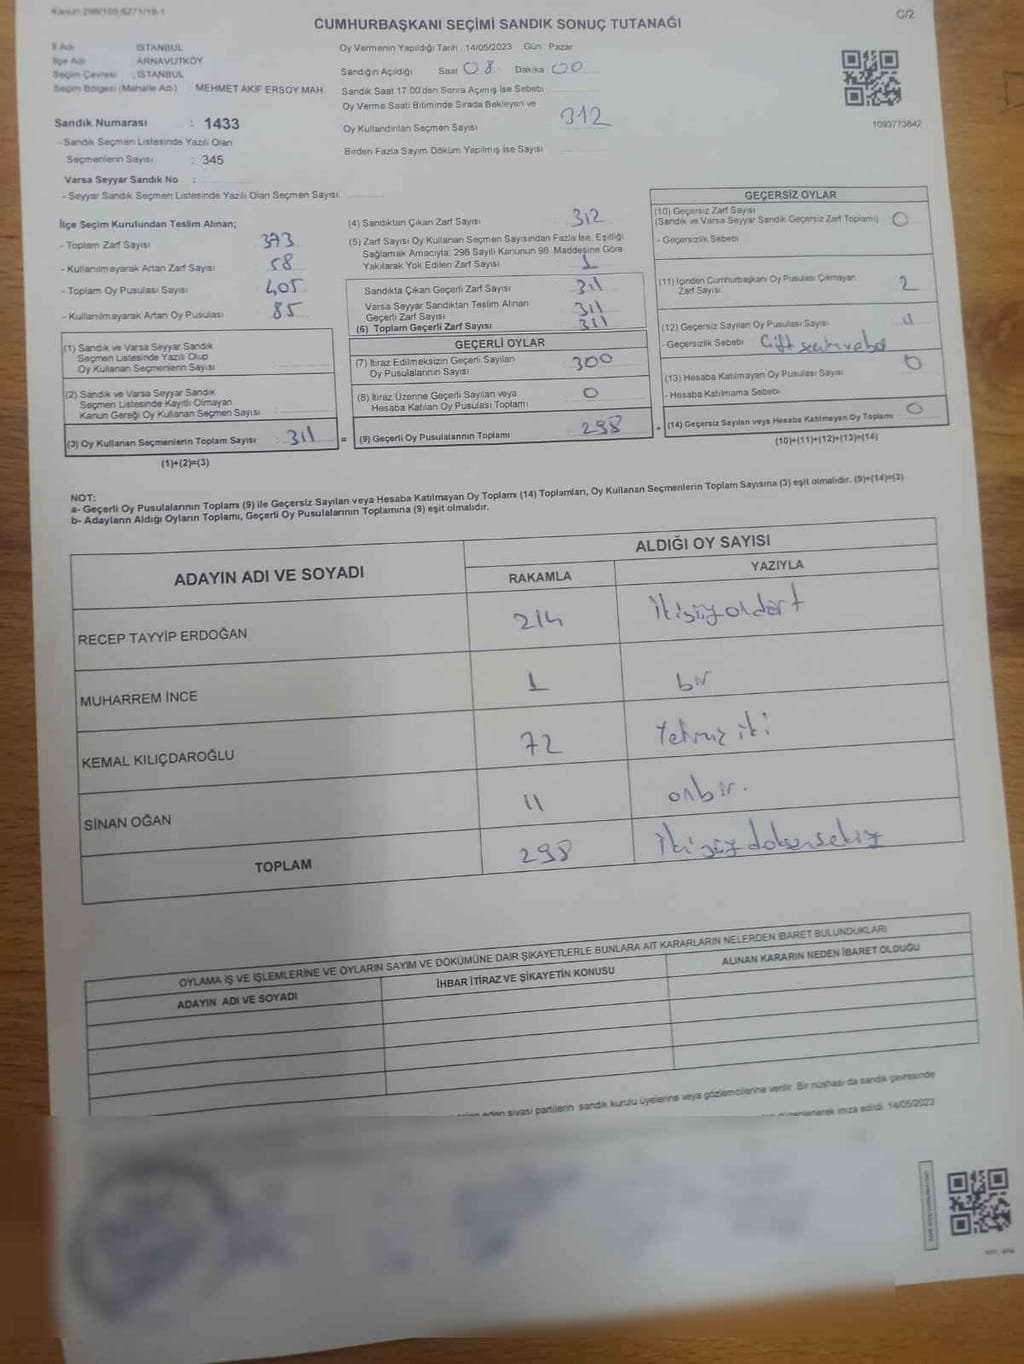 Kanun:298/105 6271/19-1
C/2
CUMHURBAŞKANI SEÇİMİ SANDIK SONUÇ TUTANAĞI
İl Adı : İSTANBUL
İlçe Adı : ARNAVUTKÖY
Seçim Çevresi : İSTANBUL
Seçim Bölgesi (Mahalle Adı) MEHMET AKİF ERSOY MAH
Sandık Numarası : 1433
- Sandık Seçmen Listesinde Yazılı Olan
Seçmenlerin Sayısı : 345
Varsa Seyyar Sandık No :
- Seyyar Sandık Seçmen Listesinde Yazılı Olan Seçmen Sayısı:
Oy Vermenin Yapıldığı Tarih : 14/05/2023 Gün : Pazar
Sandığın Açıldığı Saat 08 Dakika 00
Sandık Saat 17.00'den Sonra Açılmış İse Sebebi
Oy Verme Saati Bitiminde Sırada Bekleyen ve
Oy Kullandırılan Seçmen Sayısı 312
Birden Fazla Sayım Döküm Yapılmış İse Sayısı
1093773842
İlçe Seçim Kurulundan Teslim Alınan;
- Toplam Zarf Sayısı 373
- Kullanılmayarak Artan Zarf Sayısı 58
- Toplam Oy Pusulası Sayısı 405
- Kullanılmayarak Artan Oy Pusulası 85
(1) Sandık ve Varsa Seyyar Sandık
Seçmen Listesinde Yazılı Olup
Oy Kullanan Seçmenlerin Sayısı
(2) Sandık ve Varsa Seyyar Sandık
Seçmen Listesinde Kayıtlı Olmayan
Kanun Gereği Oy Kullanan Seçmen Sayısı
(3) Oy Kullanan Seçmenlerin Toplam Sayısı 311 =
(1)+(2)=(3)
(4) Sandıktan Çıkan Zarf Sayısı 312
(5) Zarf Sayısı Oy Kullanan Seçmen Sayısından Fazla İse, Eşitliği
Sağlamak Amacıyla, 298 Sayılı Kanunun 98. Maddesine Göre
Yakılarak Yok Edilen Zarf Sayısı 1
Sandıkta Çıkan Geçerli Zarf Sayısı 311
Varsa Seyyar Sandıktan Teslim Alınan
Geçerli Zarf Sayısı 311
(6) Toplam Geçerli Zarf Sayısı 311
GEÇERLİ OYLAR
(7) İtiraz Edilmeksizin Geçerli Sayılan
Oy Pusulalarının Sayısı 300
(8) İtiraz Üzerine Geçerli Sayılan veya
Hesaba Katılan Oy Pusulası Toplamı 0
(9) Geçerli Oy Pusulalarının Toplamı 298 +
GEÇERSİZ OYLAR
(10) Geçersiz Zarf Sayısı
(Sandık ve Varsa Seyyar Sandık Geçersiz Zarf Toplamı) 0
- Geçersizlik Sebebi
(11) İçinden Cumhurbaşkanı Oy Pusulası Çıkmayan
Zarf Sayısı 2
(12) Geçersiz Sayılan Oy Pusulası Sayısı
- Geçersizlik Sebebi Çift
(13) Hesaba Katılmayan Oy Pusulası Sayısı 0
- Hesaba Katılmama Sebebi
(14) Geçersiz Sayılan veya Hesaba Katılmayan Oy Toplamı 0
(10)+(11)+(12)+(13)=(14)
NOT:
a- Geçerli Oy Pusulalarının Toplamı (9) ile Geçersiz Sayılan veya Hesaba Katılmayan Oy Toplamı (14) Toplamları, Oy Kullanan Seçmenlerin Toplam Sayısına (3) eşit olmalıdır. (9)+(14)=(3)
b- Adayların Aldığı Oyların Toplamı, Geçerli Oy Pusulalarının Toplamına (9) eşit olmalıdır.
ADAYIN ADI VE SOYADI
ALDIĞI OY SAYISI
RAKAMLA YAZIYLA
RECEP TAYYİP ERDOĞAN 214 ikiyüzondört
MUHARREM İNCE 1 bir
KEMAL KILIÇDAROĞLU 72 Yetmiş iki
SİNAN OĞAN 11 onbir.
TOPLAM 298 ikiyüzdoksansekiz
OYLAMA İŞ VE İŞLEMLERİNE VE OYLARIN SAYIM VE DÖKÜMÜNE DAİR ŞİKAYETLERLE BUNLARA AİT KARARLARIN NELERDEN İBARET BULUNDUKLARI
ADAYIN ADI VE SOYADI İHBAR İTİRAZ VE ŞİKAYETİN KONUSU ALINAN KARARIN NEDEN İBARET OLDUĞU
eden siyasi partilerin sandık kurulu üyelerine veya gözlemcilerine verilir. Bir nüshası da sandık çevresinde
düzenlenerek imza edildi. 14/05/2023